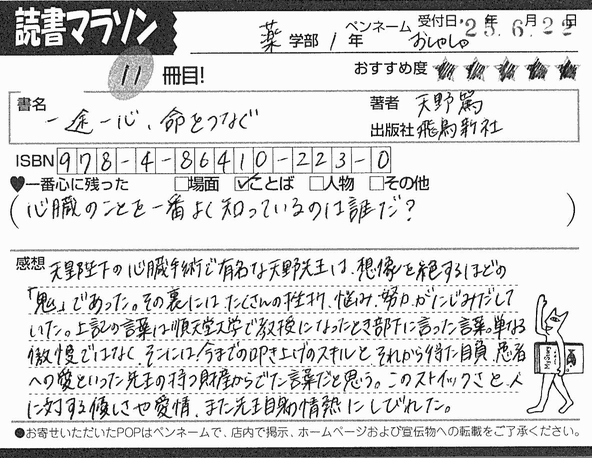 読書マラソン
薬 学部 1 年 ペンネーム おしゃしゃ 受付日 '25年6月22日
11 冊目! おすすめ度 ★★★★★
書名 一途一心、命をつなぐ 著者 天野篤
出版社 飛鳥新社
ISBN 978-4-86410-223-0
♥一番心に残った □場面 ☑ことば □人物 □その他
(心臓のことを一番よく知っているのは誰だ?)
感想 天皇陛下の心臓手術で有名な天野先生は、想像を絶するほどの
「鬼」であった。その裏にはたくさんの挫折、悩み、努力がにじみだして
いた。上記の言葉は順天堂大学で教授になったとき部下に言った言葉。単なる
傲慢ではなく、そこには、今までの叩き上げのスキルとそれから得た自負、患者
への愛といった先生の持つ財産からでた言葉だと思う。このストイックさと、人
に対する優しさや愛情、また先生自身の情熱にしびれた。
●お寄せいただいたPOPはペンネームで、店内で掲示、ホームページおよび宣伝物への転載をご了承ください。